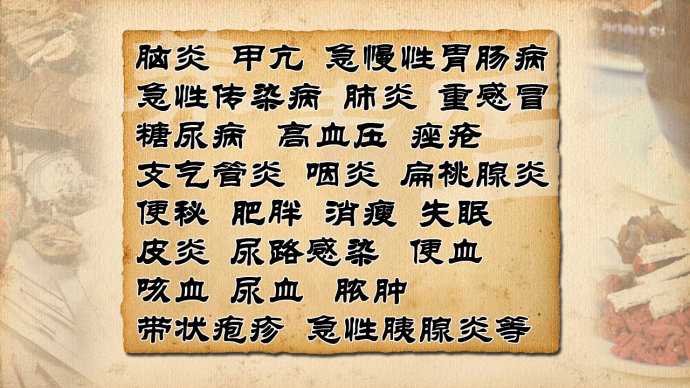 脑炎 甲亢 急慢性胃肠病
急性传染病 肺炎 重感冒
糖尿病 高血压 痤疮
支气管炎 咽炎 扁桃腺炎
便秘 肥胖 消瘦 失眠
皮炎 尿路感染 便血
咳血 尿血 脓肿
带状疱疹 急性胰腺炎等